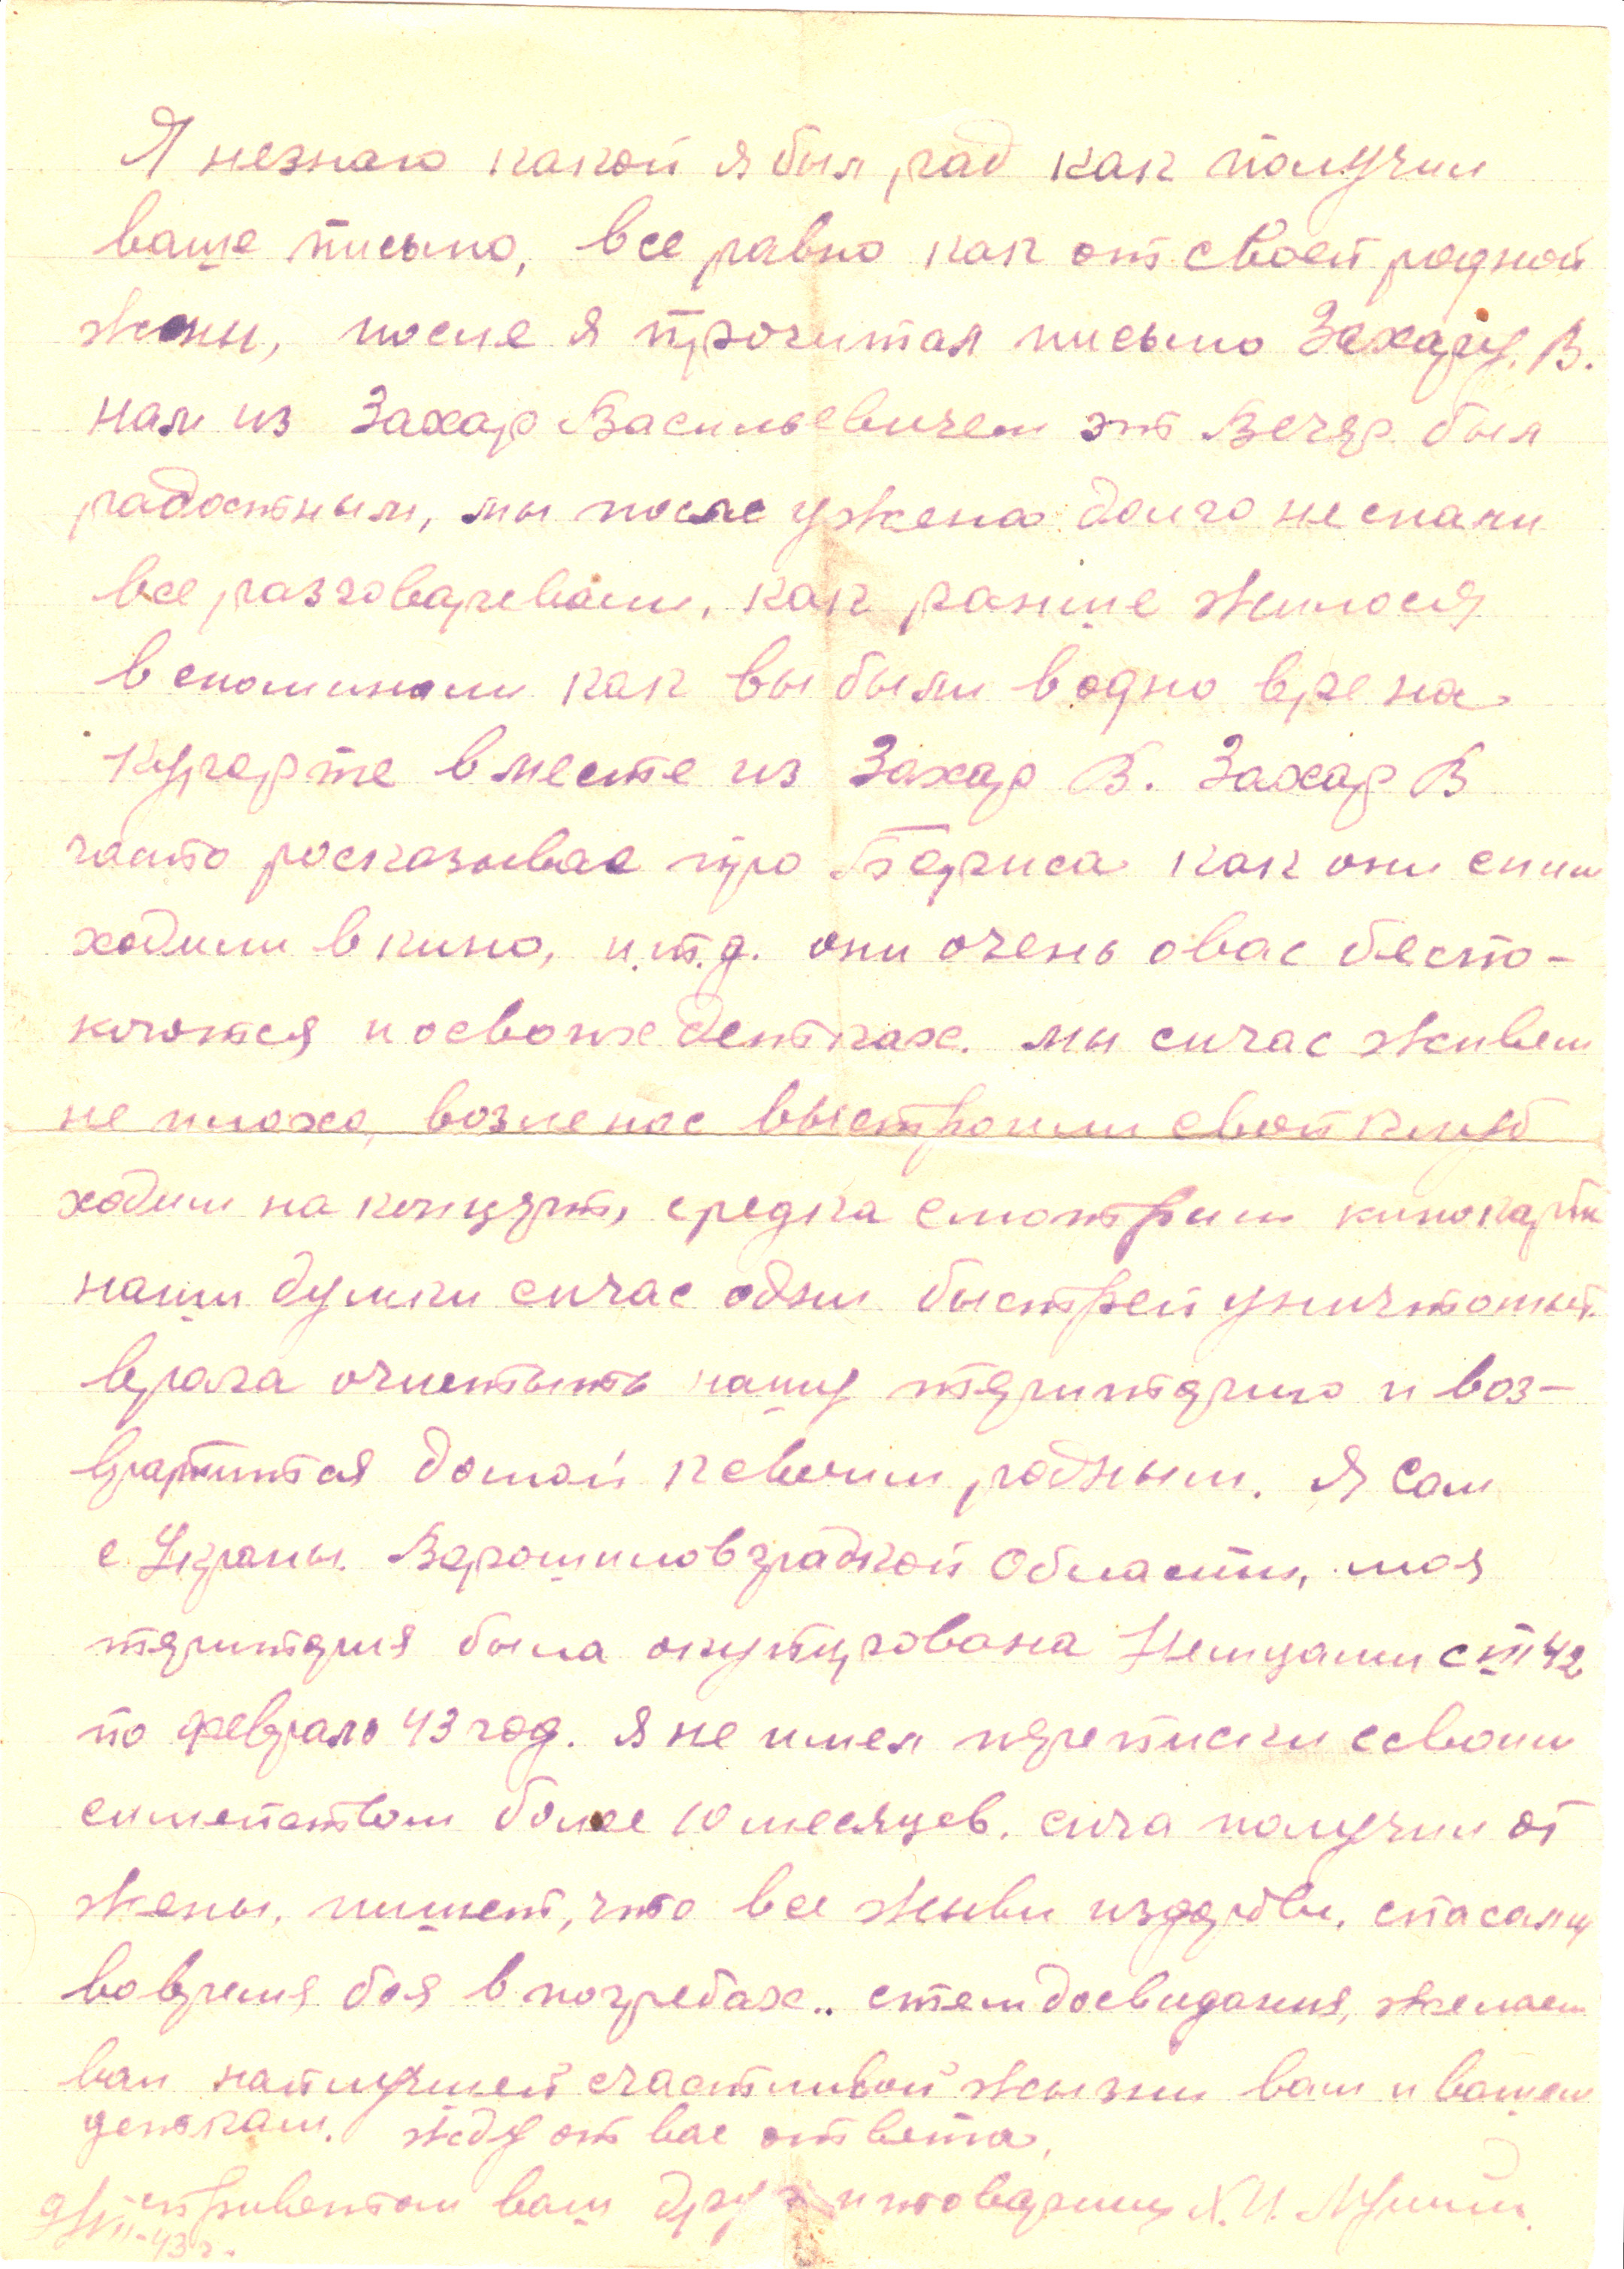 Я незнаю какой я был рад как получил
ваше письмо, все равно как от своей родной
жены, после я прочитал письмо Захару. В.
нам из Захар Васильевичем эт Вечер был
радостным, мы после ужена долго не спали
все разговаревали, как раньше жилося
вспоминали как вы были водно вре на
курорте вместе из Захар В. Захар В
часто росказывае про Бориса как они сним
ходили в кино, и.т.д. они очень овас беспо-
коются и освоих детках. мы сичас живем
не плохо, возле нас выстроили свой клуб
ходим на концерт, средка смотрим кинокартин
наши думки сичас одни быстрей уничтожит.
врага очистыть нашу територию и воз-
вратится домой ксвоим родным. Я сам
с Украны. Ворошиловградской Области, моя
територия была окупирована Немцами с VII 42
по февраль 43 год. Я не имел переписки ссвоим
симейством более 10 месяцев. сича получил от
жены. пишет, что все живы издоровы. спасалис
вовремя боя в погребах.. стем досвидания, желаем
вам найлучшей счастливой жызни вам и вашем
деткам. жду от вас ответа,
сприветом ваш друг и товарищ Х.И.
9/VII-43 г.